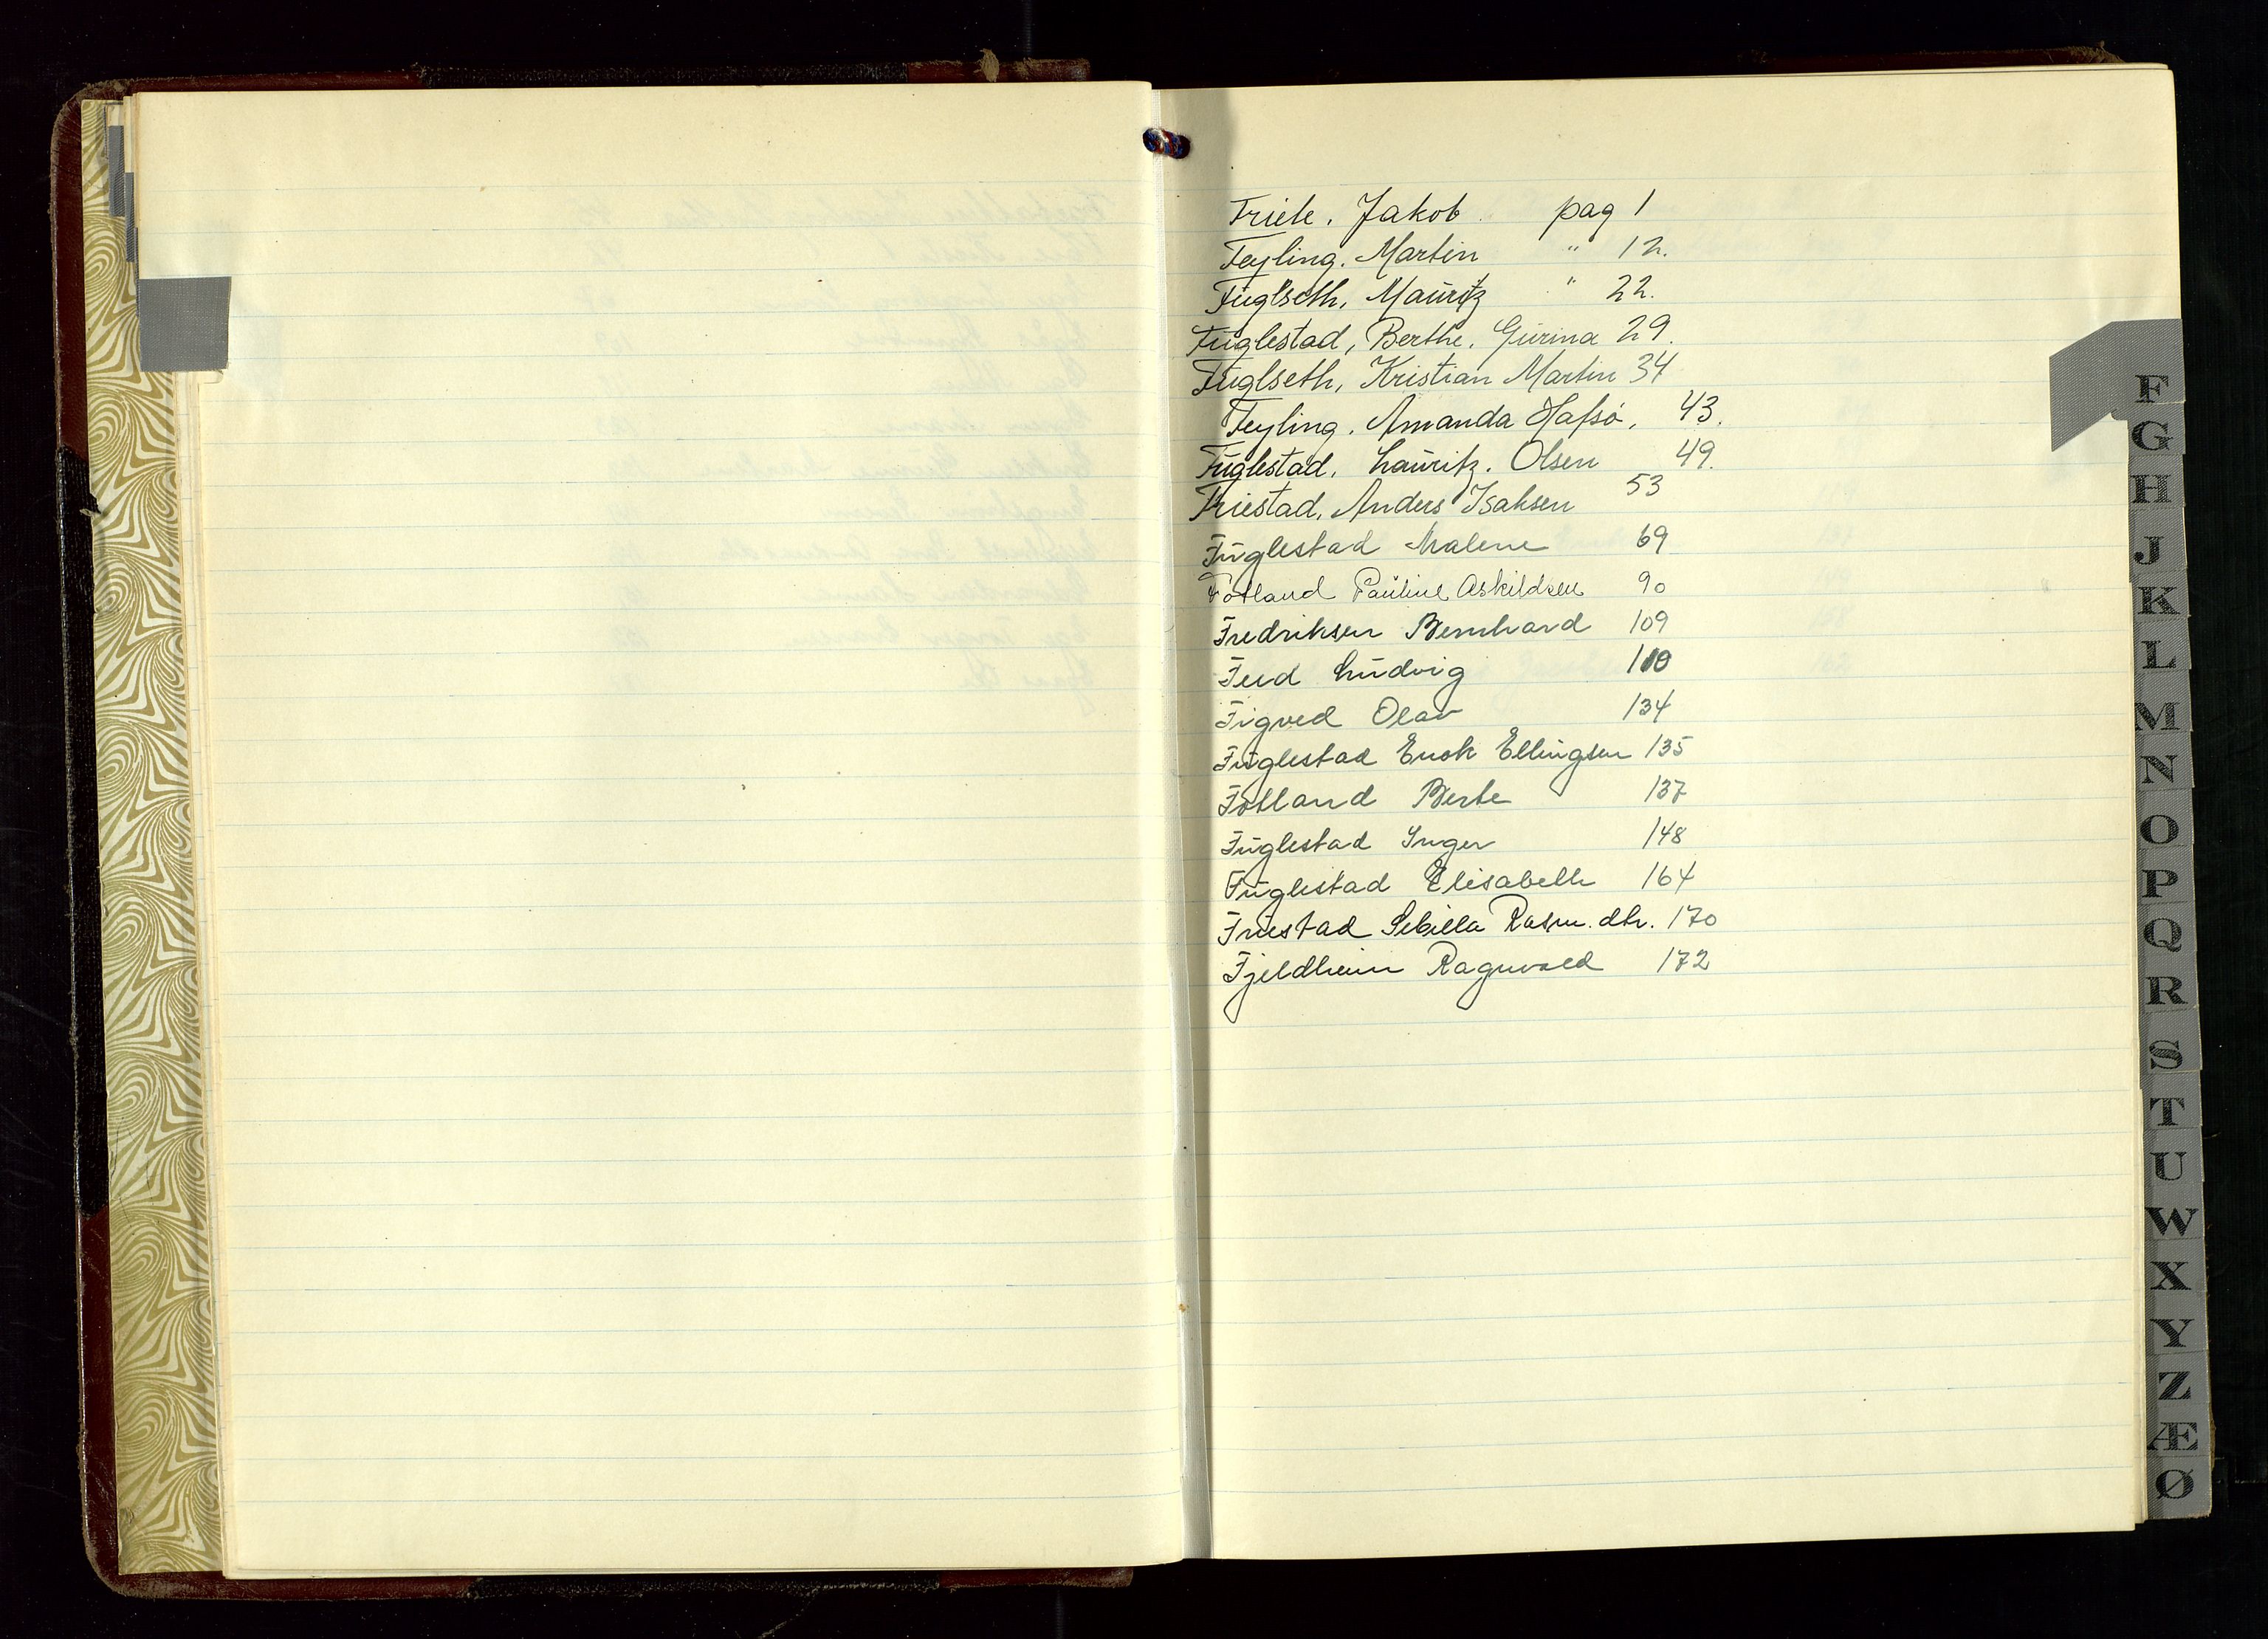 Friele. Jakob. pag 1
Feyling. Martin " 12.
Fuglseth, Mauritz " 22.
Fuglestad, Berthe. Gurina 29.
Fuglseth, Kristian Martin 34
Feyling. Amanda Hafsø, 43.
Fuglestad, Lauritz. Olsen 49.
Friestad, Anders Isaksen 53
Fuglestad Malene 69
Fotland Pauline Askildsen 90
Fredriksen Bernhard 109
Feed Ludvig 110
Figved Olav 134
Fuglestad Enok Ellingsen 135
Fotland Berte 137
Fuglestad Inger 148
Fuglestad Elisabeth 164
Friestad Sebilla Rasm. dtr. 170
Fjeldheim Ragnvald 172
F
G
H
J
K
L
M
N
O
P
Q
R
S
T
U
W
X
Y
Z
Æ
Ø